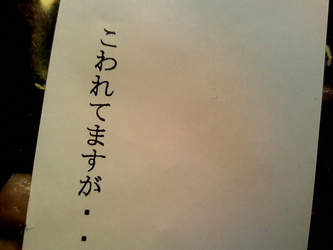 こわれてますが・・